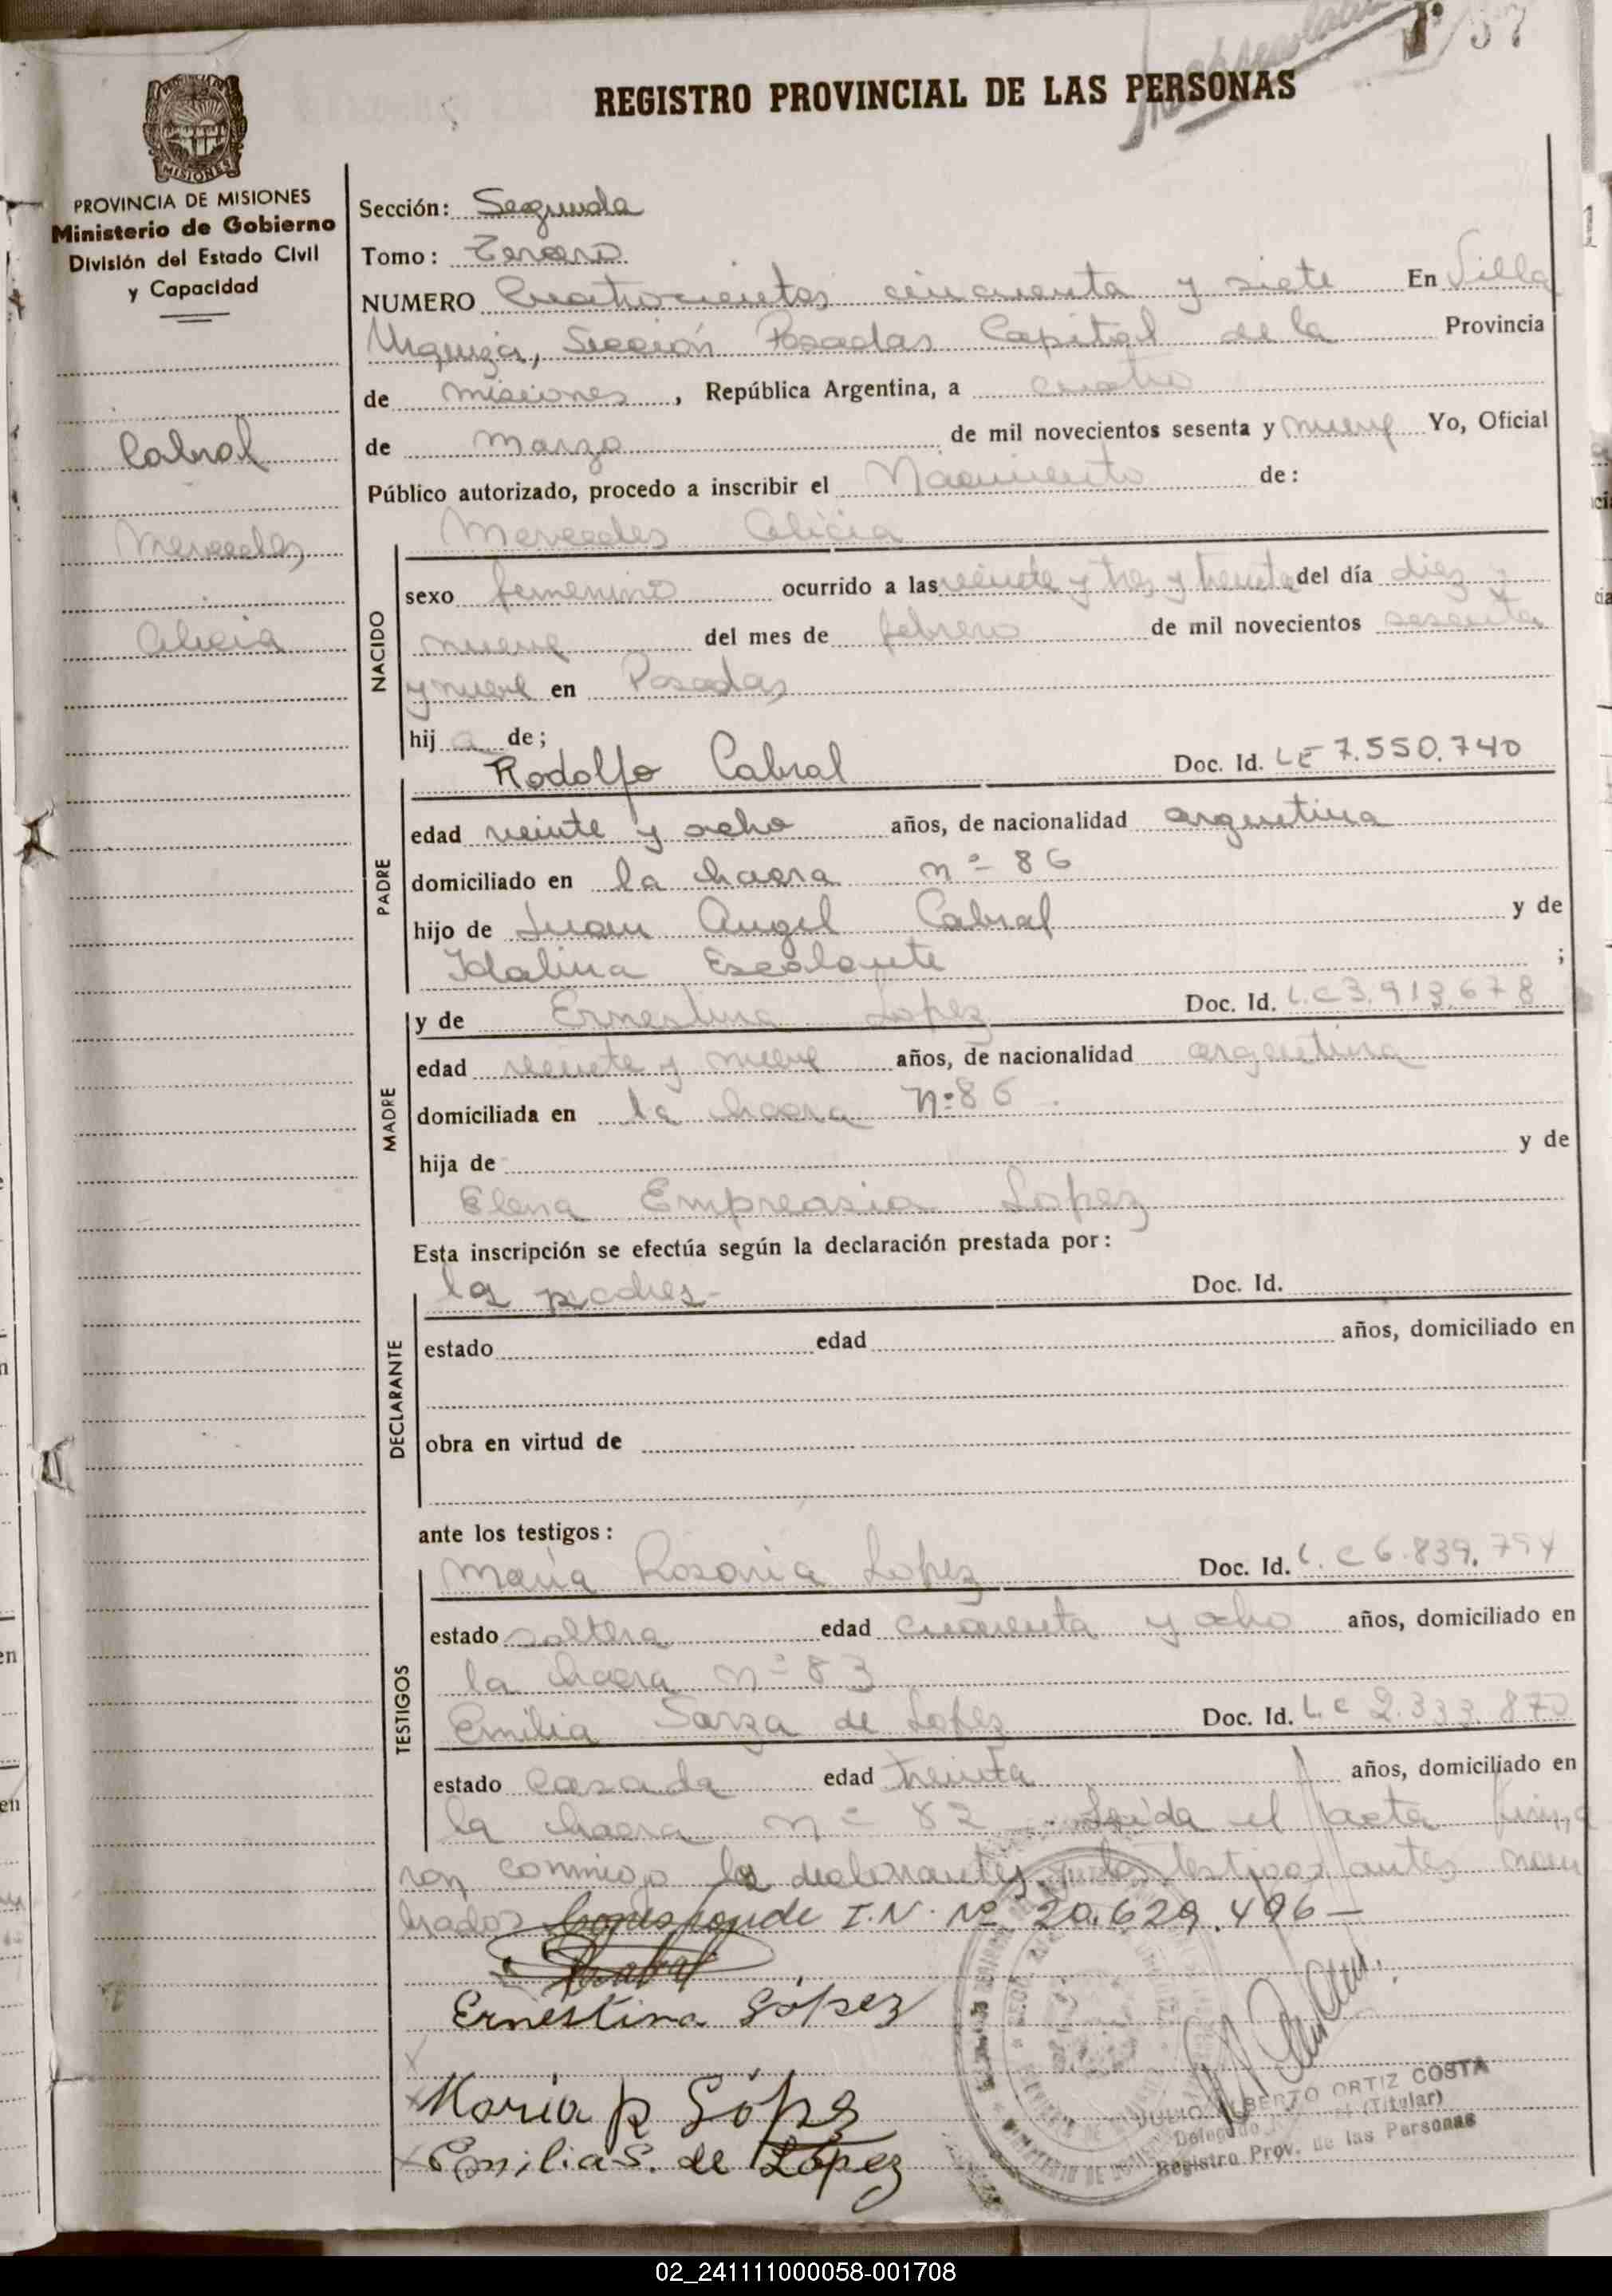 57
REGISTRO PROVINCIAL DE LAS PERSONAS
MISIONES
PROVINCIA DE MISIONES
Ministerio de Gobierno
División del Estado Civil
y Capacidad
Cabral
Mercedes
Alicia
Sección: Segunda
Tomo: Tercero
NUMERO Cuatrocientos cincuenta y siete En Villa
Urquiza, Sección Posadas Capital de la Provincia
de misiones, República Argentina, a cuatro
de marzo de mil novecientos sesenta y nueve Yo, Oficial
Público autorizado, procedo a inscribir el Nacimiento de:
Mercedes Alicia
NACIDO
sexo femenino ocurrido a las veinte y tres y treinta del día diez y
nueve del mes de febrero de mil novecientos sesenta
y nueve en Posadas
hija de;
Rodolfo Cabral Doc. Id. LE 7.550.740
PADRE
edad veinte y ocho años, de nacionalidad argentina
domiciliado en la chacra nº 86
hijo de Juan Angel Cabral y de
Idalina Escalante ;
y de Ernestina Lopez Doc. Id. L.C 3.913.678
MADRE
edad veinte y nueve años, de nacionalidad argentina
domiciliada en la chacra Nº 86
hija de y de
Elena Empreasia Lopez
Esta inscripción se efectúa según la declaración prestada por:
los padres- Doc. Id.
DECLARANTE
estado edad años, domiciliado en
obra en virtud de
ante los testigos:
Maria Rosaria Lopez Doc. Id. L.C 6.839.794
TESTIGOS
estado soltera edad cuarenta y ocho años, domiciliado en
la chacra nº 83
Emilia Sarza de Lopez Doc. Id. L.C 2.333.870
estado casada edad treinta años, domiciliado en
la chacra nº 82 Leida el acta firma
ron conmigo los declarantes y los testigos antes nom
brados Corresponde I.N. Nº 20.629.496-
Ernestina López
Maria R López
Emilia S. de López
JULIO ALBERTO ORTIZ COSTA
Delegado (Titular)
Registro Prov. de las Personas
02_241111000058-001708